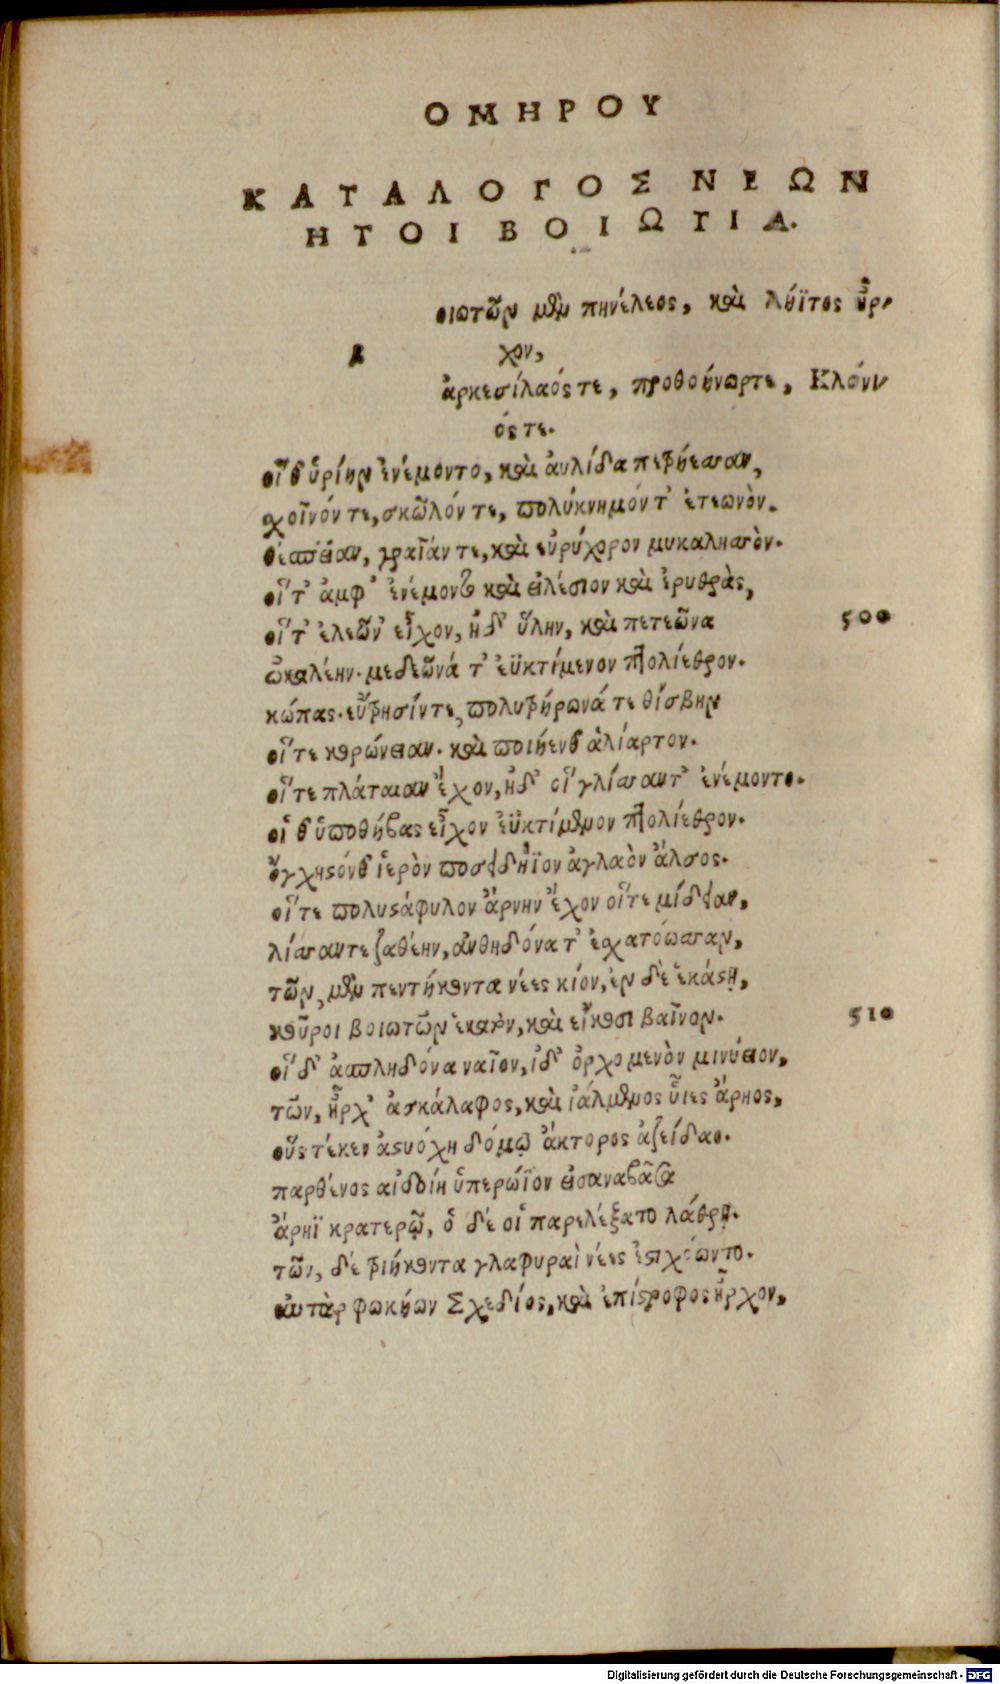 ΟΜΗΡΟΥ
ΚΑΤΑΛΟΓΟΣ ΝΕΩΝ
ΗΤΟΙ ΒΟΙΩΤΙΑ.
οιωτῶν μὲν πηνέλεος, καὶ λήϊτος ἦρ-
β χον,
ἀρκεσίλαός τε, προθοήνωρτε, Κλόνι
ός τε.
οἵ θ' ὑρίην ἐνέμοντο, καὶ ἀυλίδα πετρήεσσαν,
χοῖνόν τε, σκῶλόν τε, πολύκνημόν τ' ἐτεωνὸν.
θέσπειαν, γραῖάν τε, καὶ εὐρύχορον μυκαλησσὸν.
οἵ τ' ἀμφ' ἐνέμοντο καὶ εἰλέσιον καὶ ἐρυθρὰς,
οἵ τ' ἐλεῶν' εἶχον, ἠδ' ὕλην, καὶ πετεῶνα 500
ὠκαλέην. μεδεῶνά τ' ἐϋκτίμενον πτολίεθρον.
κώπας. εὔτρησίν τε, πολυτρήρωνά τε θίσβην
οἵ τε κορώνειαν. καὶ ποιήενθ' ἁλίαρτον.
οἵ τε πλάταιαν ἔχον, ἠδ' οἳ γλίσσαντ' ἐνέμοντο.
οἵ θ' ὑποθήβας εἶχον ἐϋκτίμενον πτολίεθρον.
ὄγχηστόνθ' ἱερὸν ποσειδήϊον ἀγλαὸν ἄλσος.
οἵ τε πολυστάφυλον ἄρνην ἔχον οἵ τε μίδειαν,
λίσσαντε ζαθέην, ἀνθηδόνα τ' ἐσχατόωσαν,
τῶν, μὲν πεντήκοντα νέες κίον, ἐν δὲ ἑκάστῃ,
κοῦροι βοιωτῶν ἑκατὸν, καὶ εἴκοσι βαῖνον. 510
οἵ δ' ἀσπληδόνα ναῖον, ἰδ' ὀρχομενὸν μινύειον,
τῶν, ἦρχ' ἀσκάλαφος, καὶ ἰάλμενος ὗιες ἄρηος,
οὓς τέκεν ἀστυόχη δόμῳ ἄκτορος ἀζείδαο.
παρθένος αἰδοίη ὑπερώϊον εἰσαναβᾶσα
ἄρηϊ κρατερῷ, ὁ δέ οἱ παρελέξατο λάθρῃ.
τῶν, δέ τριήκοντα γλαφυραὶ νέες ἐστιχόωντο.
αὐτὰρ φωκήων Σχεδίος, καὶ ἐπίστροφος ἦρχον,
Digitalisierung gefördert durch die Deutsche Forschungsgemeinschaft - DFG